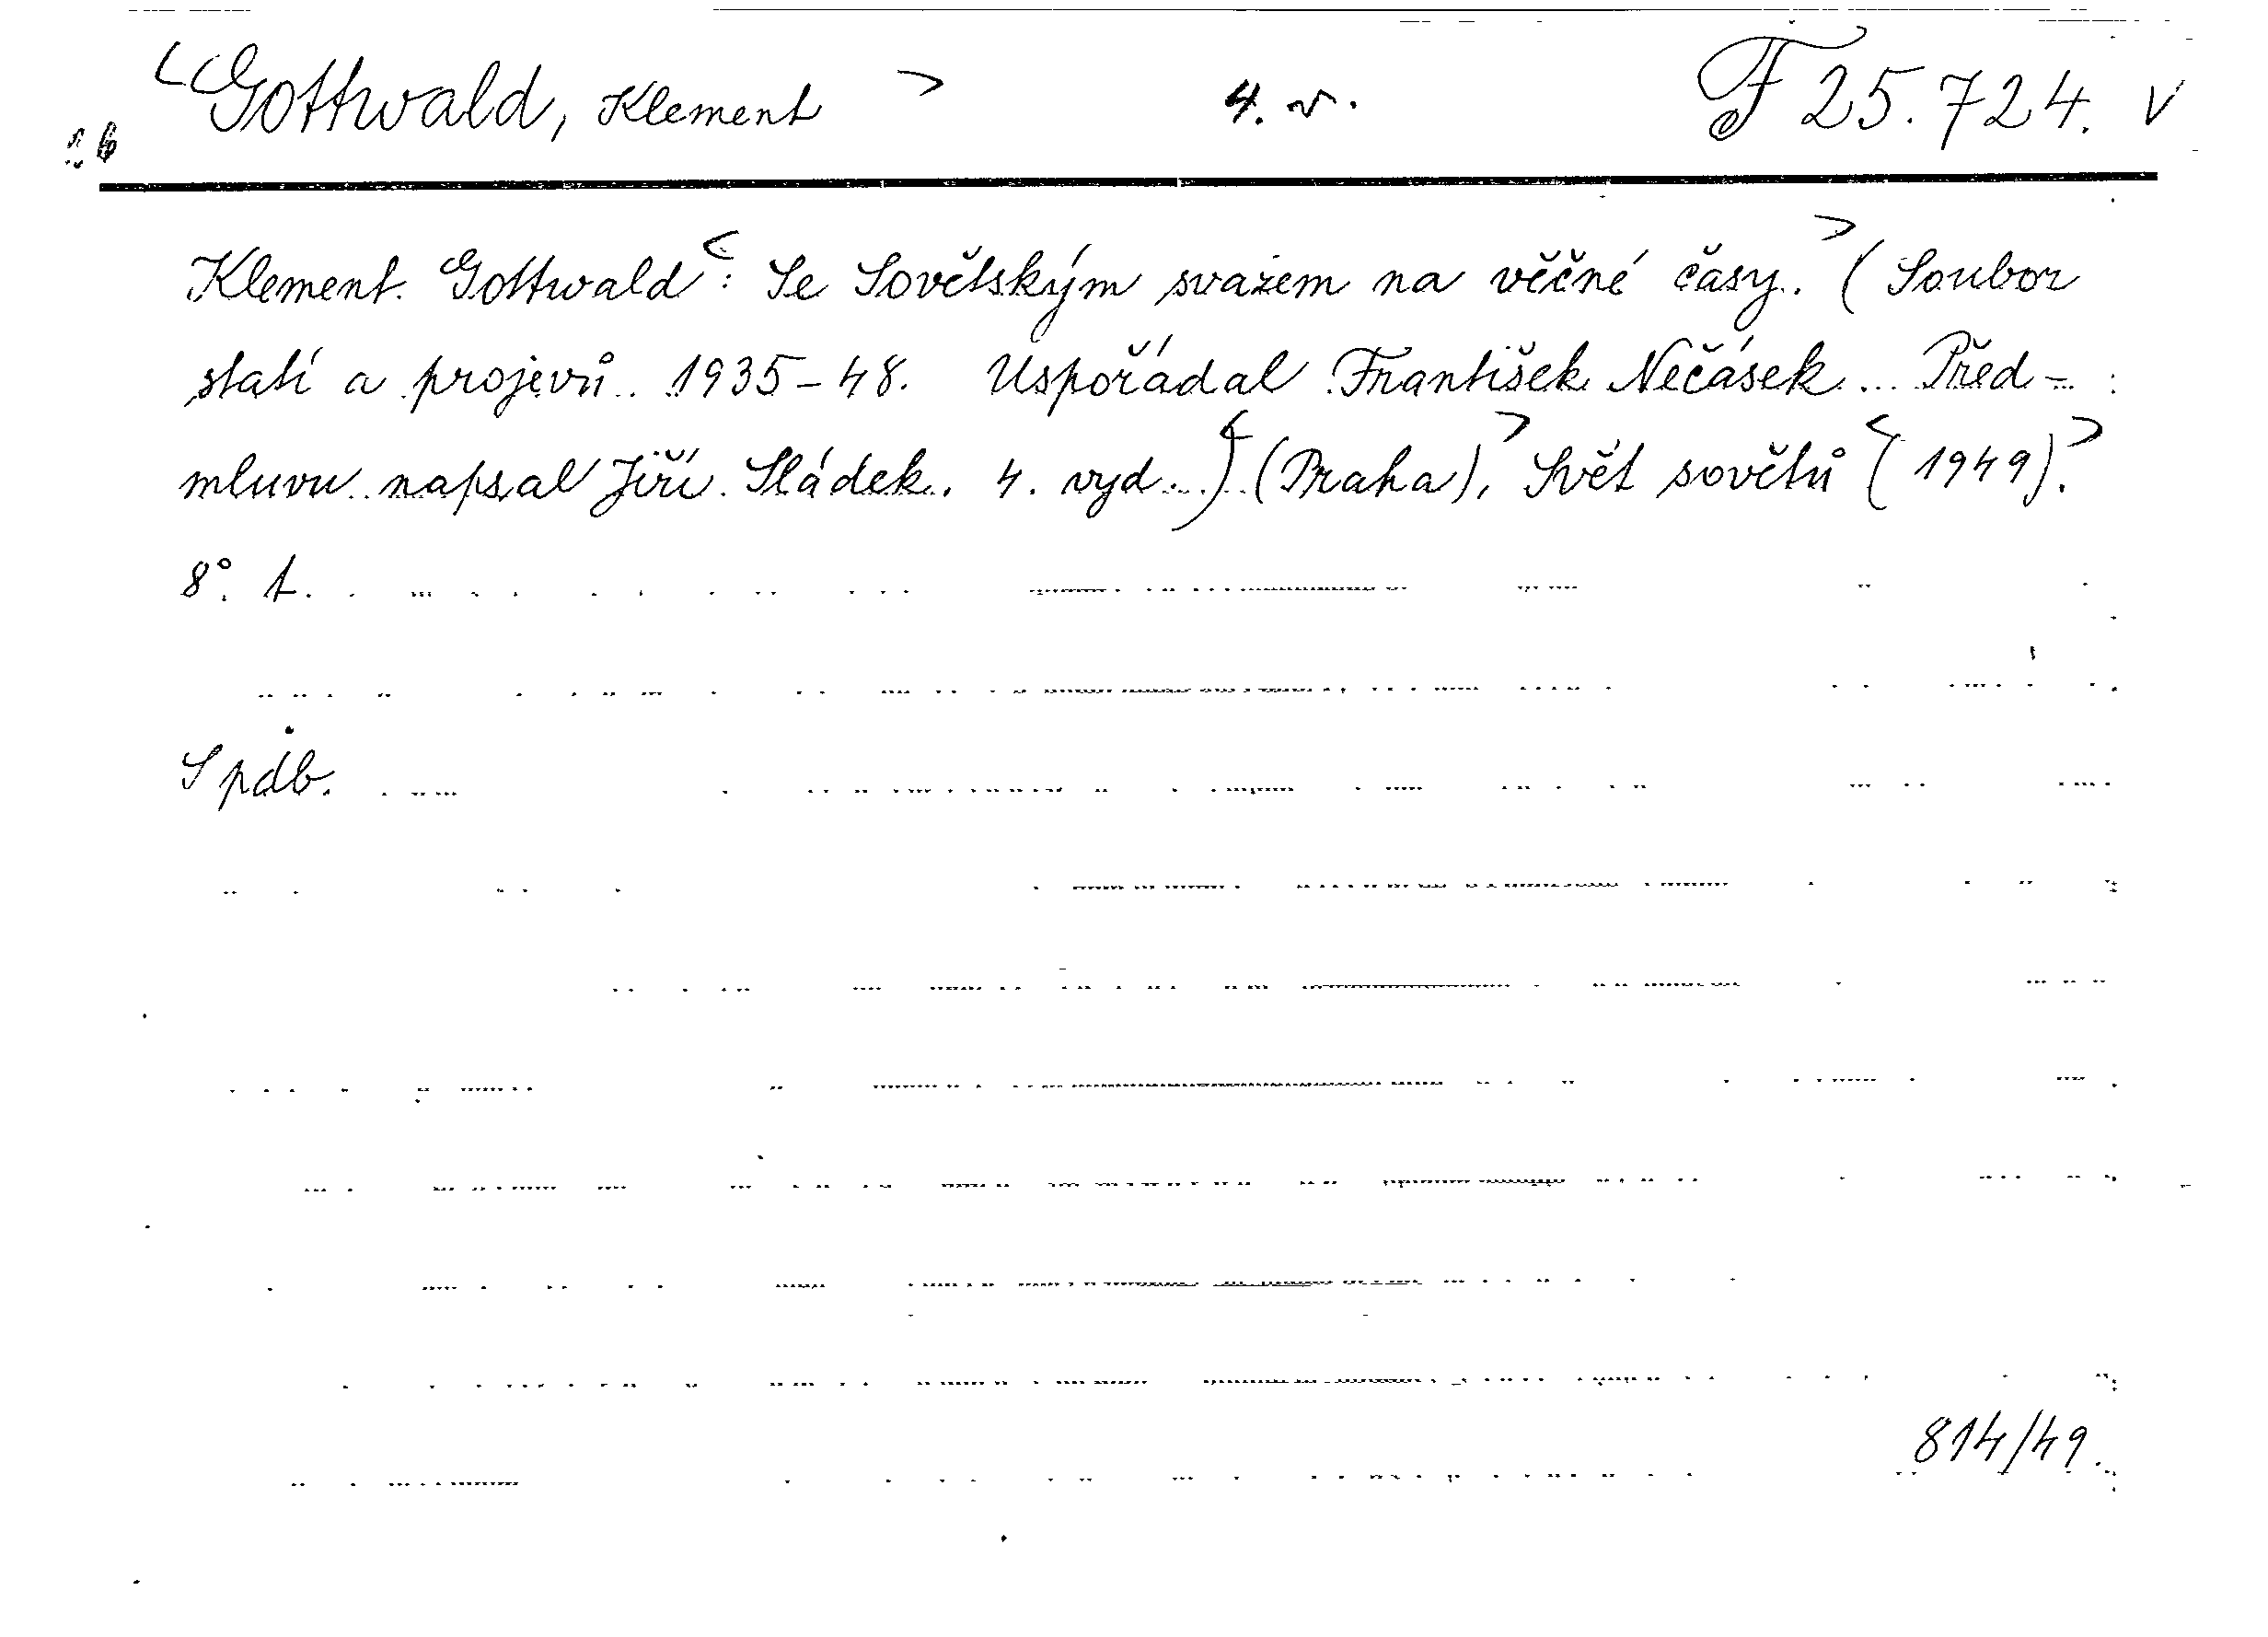 <Gottwald, Klement> 4. v. F 25.724. V
Klement Gottwald<: Se Sovětským svazem na věčné časy.> (Soubor
statí a projevů 1935-48. Uspořádal František Nečásek... Před-
mluvu napsal Jiří Sládek. 4. vyd.)< (Praha),> Svět sovětů <(1949).>
8°. 1.
S pdb.
814/49.